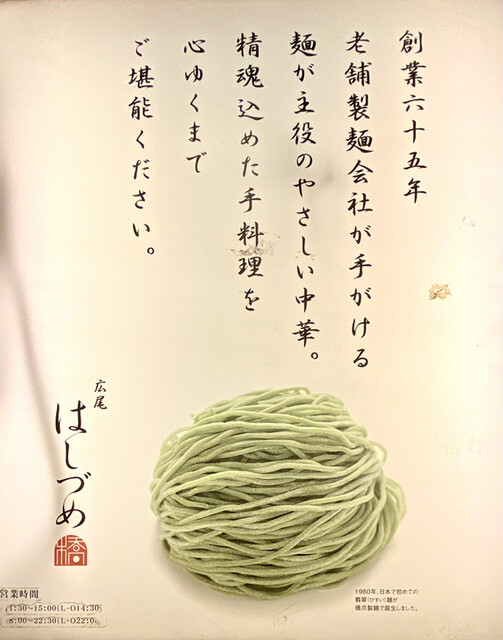 創業六十五年
老舗製麺会社が手がける
麺が主役のやさしい中華。
精魂込めた手料理を
心ゆくまで
ご堪能ください。
広尾
はしづめ
橋
1980年、日本で初めての
翡翠(ひすい)麺が
橋爪製麺で誕生しました。
営業時間
11:30~15:00(L·O14:30)
18:00~22:30(L·O22:0